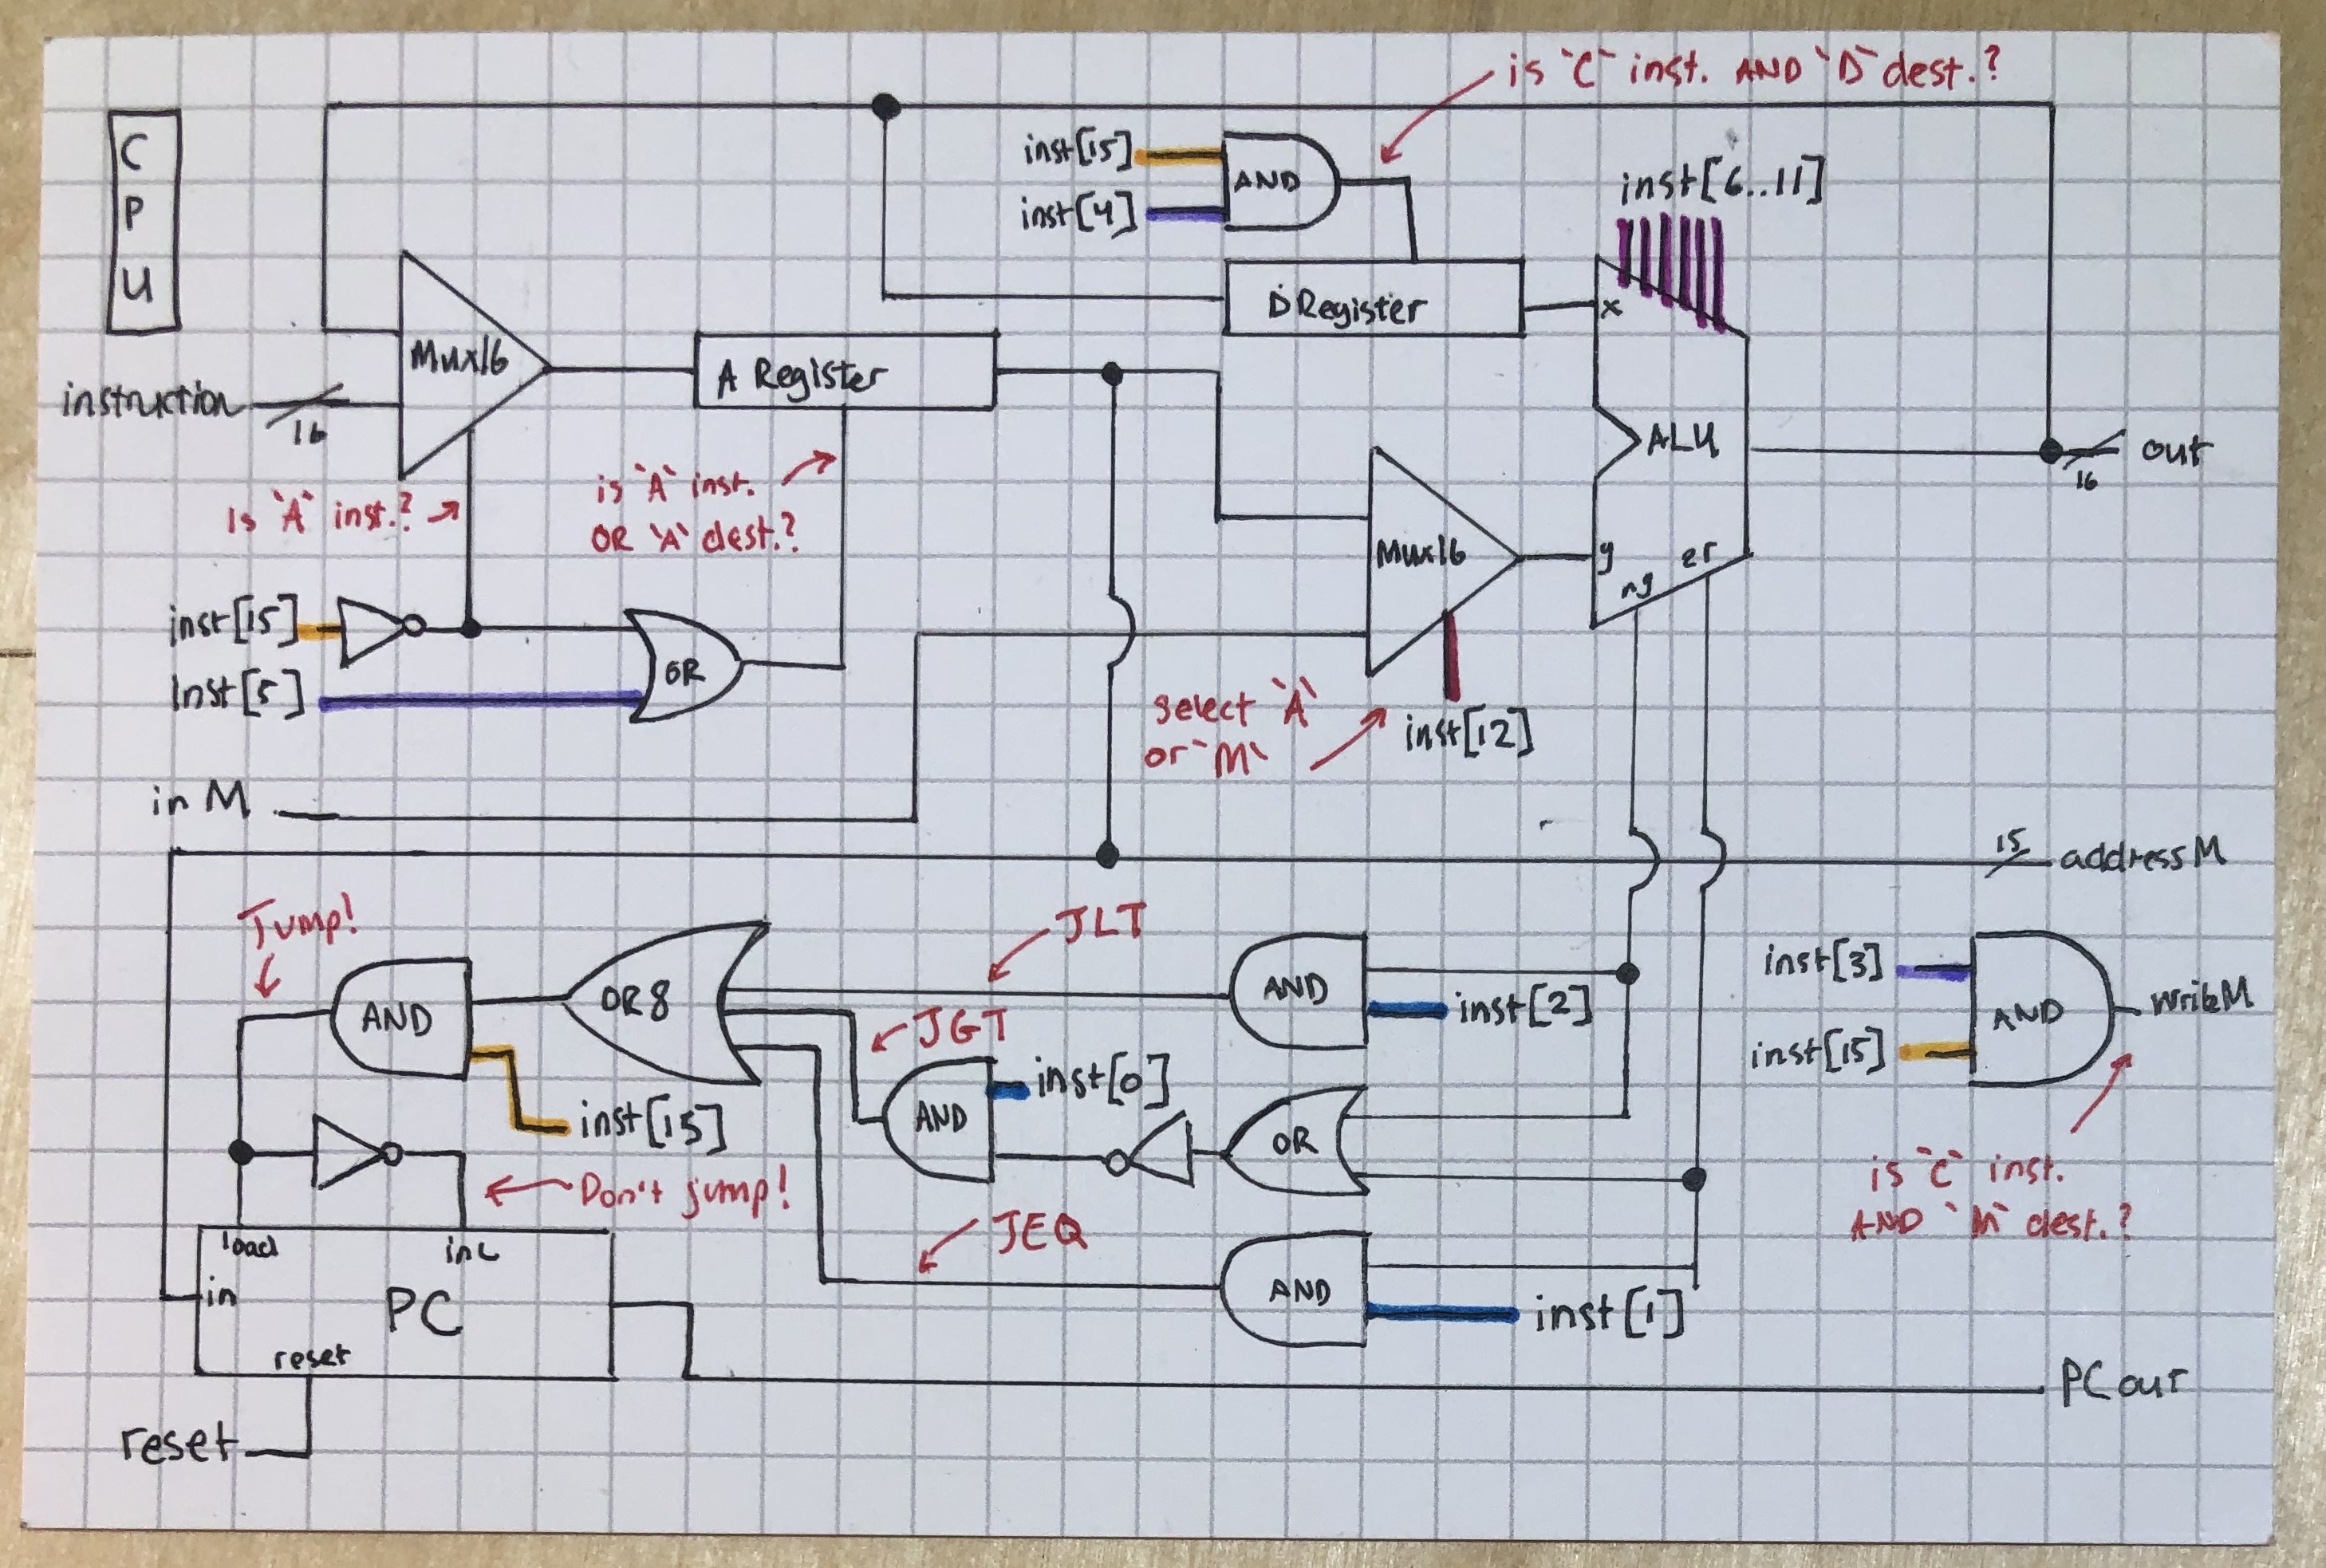 CPU
is `C` inst. AND `D` dest.?
inst[15]
AND
inst[4]
inst[6..11]
D Register
x
Mux16
A Register
instruction
16
ALU
out
16
is `A` inst.
OR `A` dest.?
Is `A` inst.?
Mux16
y
zr
ng
inst[15]
OR
Inst[5]
select `A`
or `M`
inst[12]
in M
15
addressM
Jump!
JLT
inst[3]
AND
writeM
inst[15]
AND
OR8
AND
inst[2]
JGT
inst[0]
AND
inst[15]
OR
Don't jump!
is `C` inst.
AND `M` dest.?
JEQ
load
inc
in
PC
reset
AND
inst[1]
PC out
reset